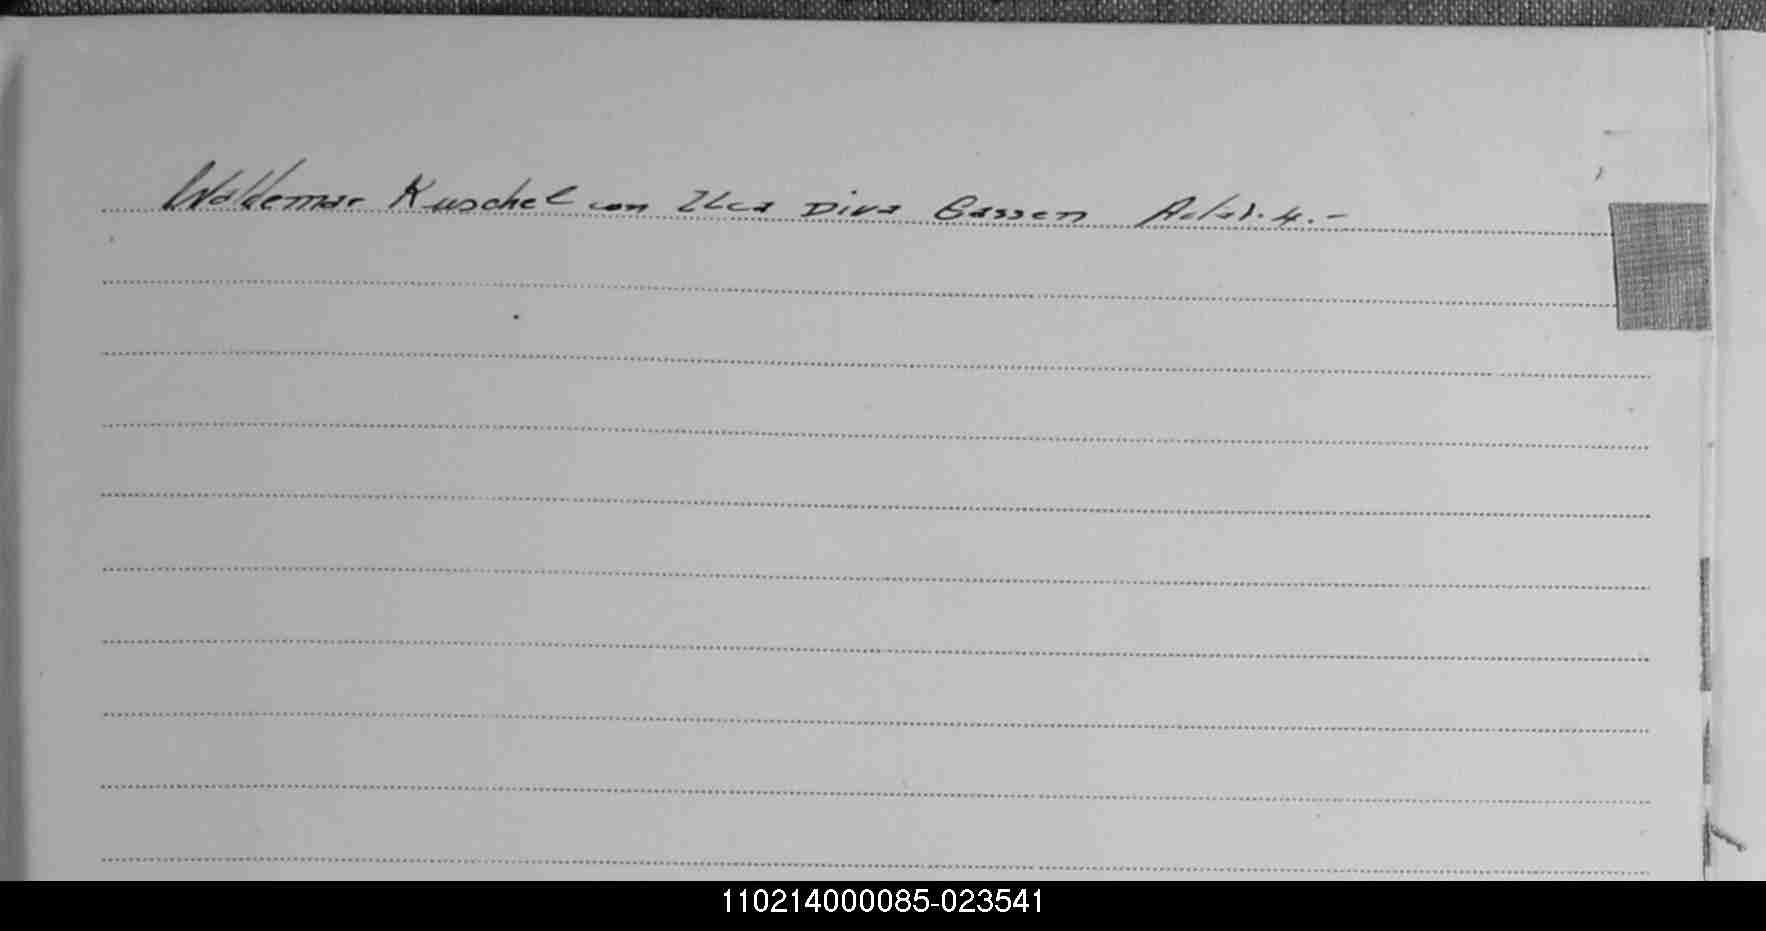 Waldemar Kuschel con Ilca Diva Gassen Acta. 4.-
110214000085-023541